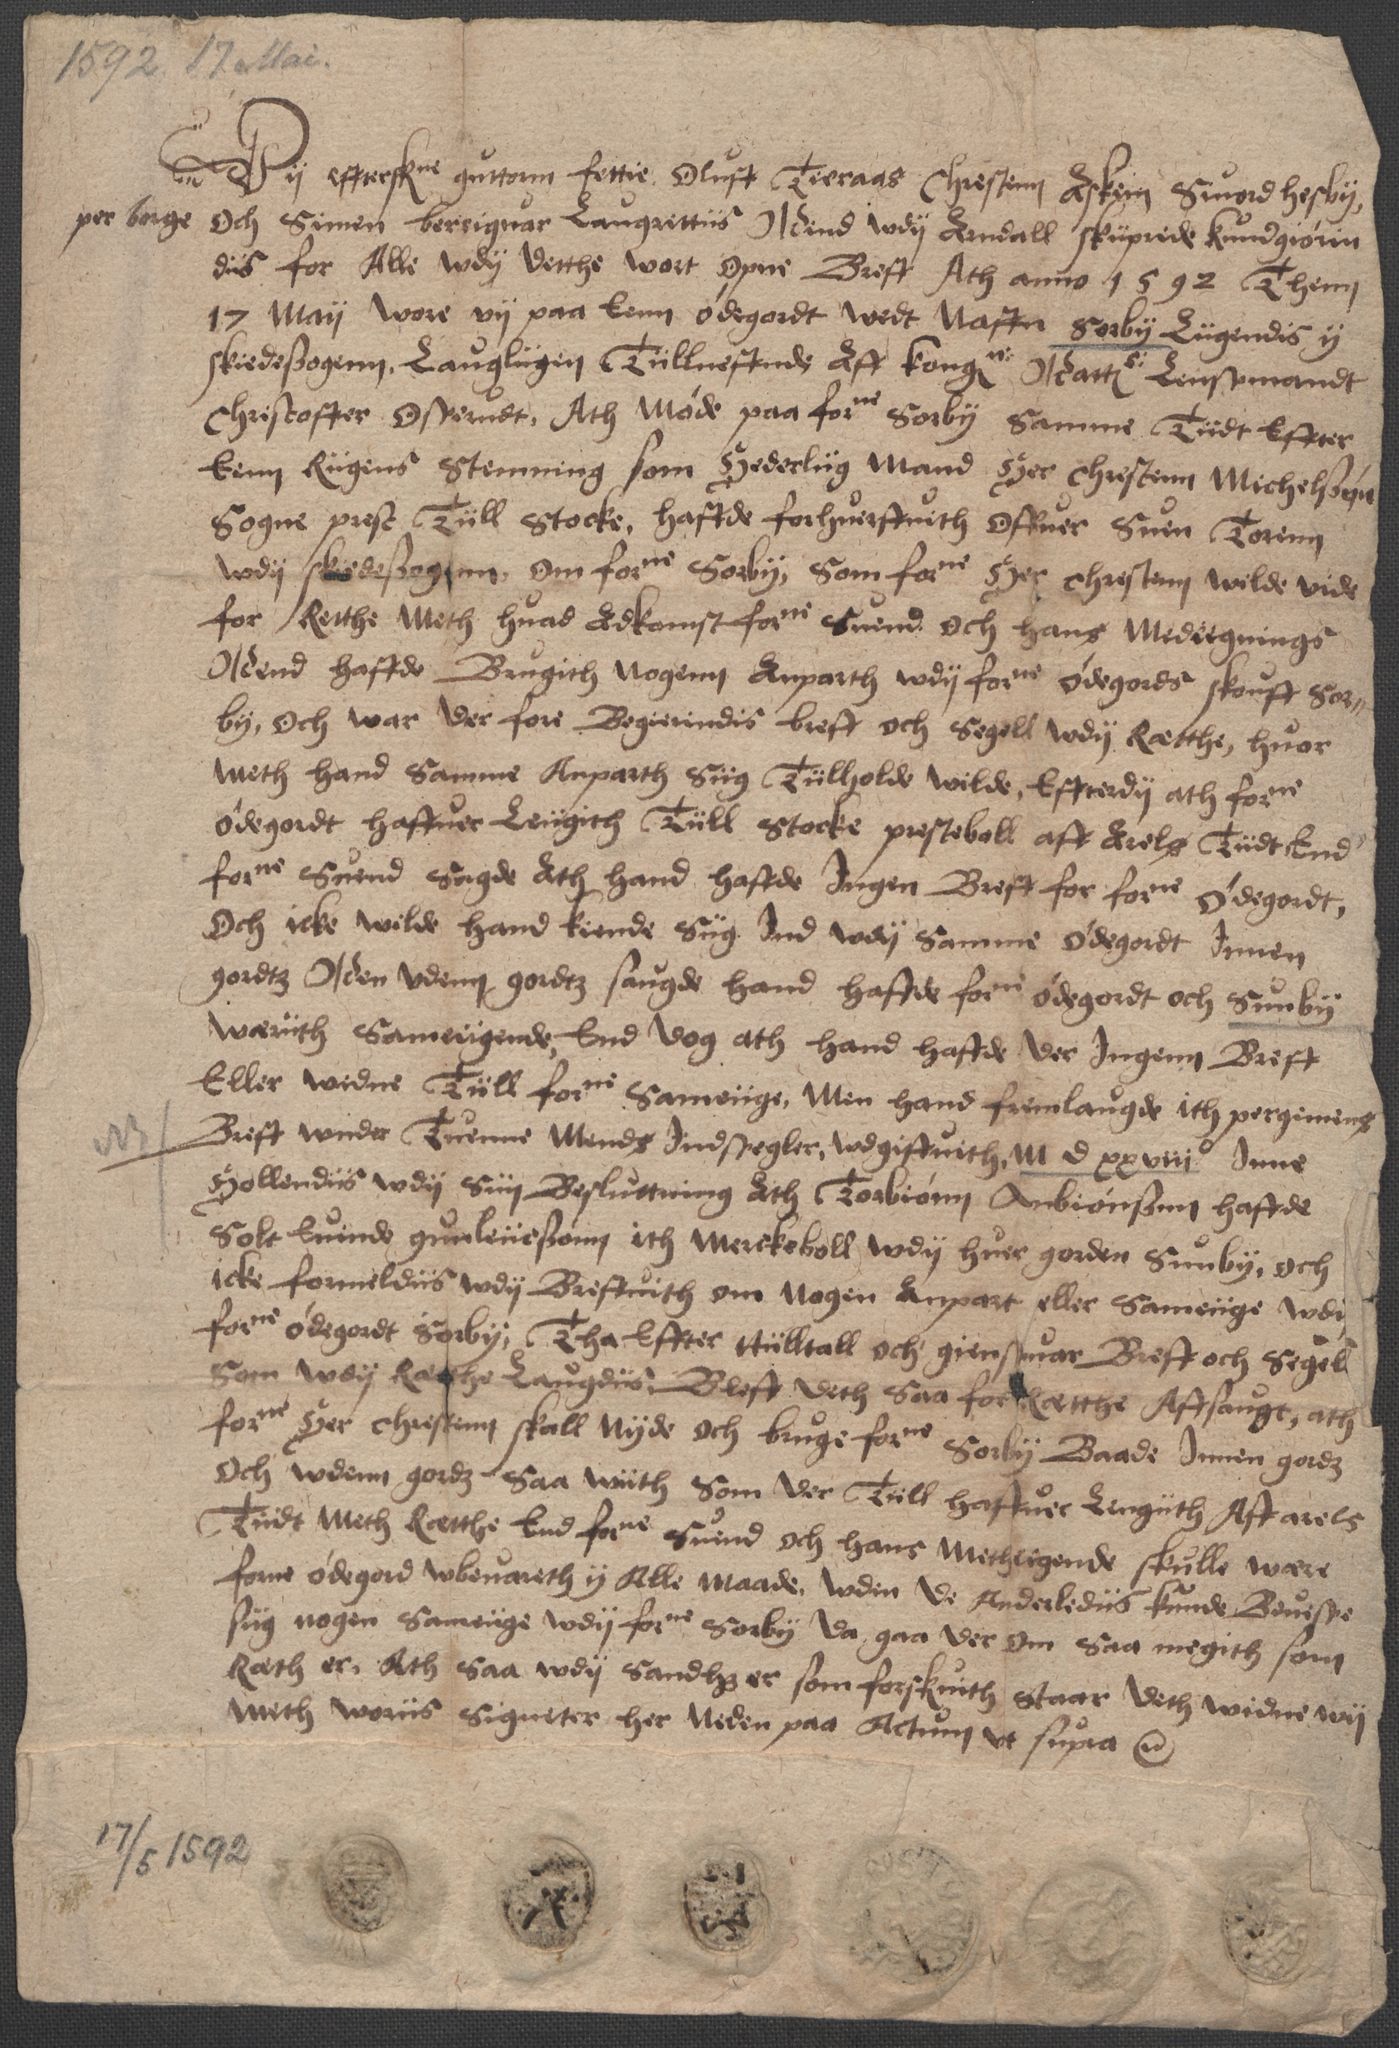 1592 17 Mai.
Wij effterskne guttorm fettie Oluff Tieraas Chrestenn Askein Siuord hesby,
per borge Och Simen berrignar Laugrettiis Mend wdij Arndall skiiprede kundgiørin
diis for Alle wdij dette wort Opne Breff Ath anno 1592 Thenn
17 Maij wore vij paa Eenn ødegordt wedt Naffn Sorbij Liigendis ij
skiedeßogenn, Laugliigen Tiillneffnde Aff kong: Matt: Lensmandt
Chrestoffer Osterudt, Ath Møde paa forne Sorbij Samme Tiidt Effter
Eenn Riigens Stemning som Hederliig Mand Her Chrestenn Michelßøn
Sogne prest Tiill Stocke, haffde forhuerffuith Offuer Suen Torenn
wdij skiedeßogenn, Om forne Sorbij, Som forne Her Chrestenn wilde vide
for Retthe Meth huad Adkomst forne Suend Och hans Mediegnings
Mend haffde Brugith Nogenn Anparth wdij forne ødegords skouff Sor
bij, Och war der fore Begierindis breff Och Segell wdij Rætthe, huor
Meth hand Samme Anparth Siig Tiilholde wilde, Effterdij ath forne
ødegordt haffuer Leiigith Tiill Stocke presteboll aff Arels Tiidt, End
forne Suend Sagde Ath hand haffde Ingen Breff for forne Ødegordt,
Och icke wilde hand kiende Siig Ind wdij Samme Ødegordt Innen
gordtz Men vdenn gordtz saugde hand haffde forne ødegordt och Sunbij
wæriith Sameiigende, End dog ath hand haffde der Ingenn Breff
Eller widne Tiill forne Sameiige, Men hand fremlaugde ith pergemens
Breff wnder Tuenne Mends Indsegler, wdgiffuith, M D xxviii Inne
Hollendiis wdij Siin Besluttning Ath Torbiønn Anbiønßøn haffde
Solt Euinde gunleiießønn ith Merckeboll wdij huer gorden Sunbij, Och
icke formeldiis wdij Breffuith om Nogen Anpart eller Sameiige wdij
forne ødegordt Sorbij, Tha Effter tiilltall och giensuar Breff och Segell
Som wdij Rætthe Laugdiis, Bleff deth Saa for Rætthe Affsaugt, ath
forne Her Chrestenn skall Nijde Och bruge forne Sorbij Baade Innen gordz
Och wdenn gordz Saa wiith Som der Tiill haffuer Leiigiith Aff arels
Tiidt Meth Rætthe End forne Suend Och hans Metheigende skulle wære
forne ødegord wbeuareth ij Alle Maade, wden de Anderlediis kunde Beuise
siig nogen Sameiige wdij forne Sorbij Da gaa der Om Saa megith som
Ræth er. Ath Saa wdij Sandhz er som forskuith Staar deth widne wij
Meth woriis Signeter her Neden paa Actum ut supra
17/5 1592